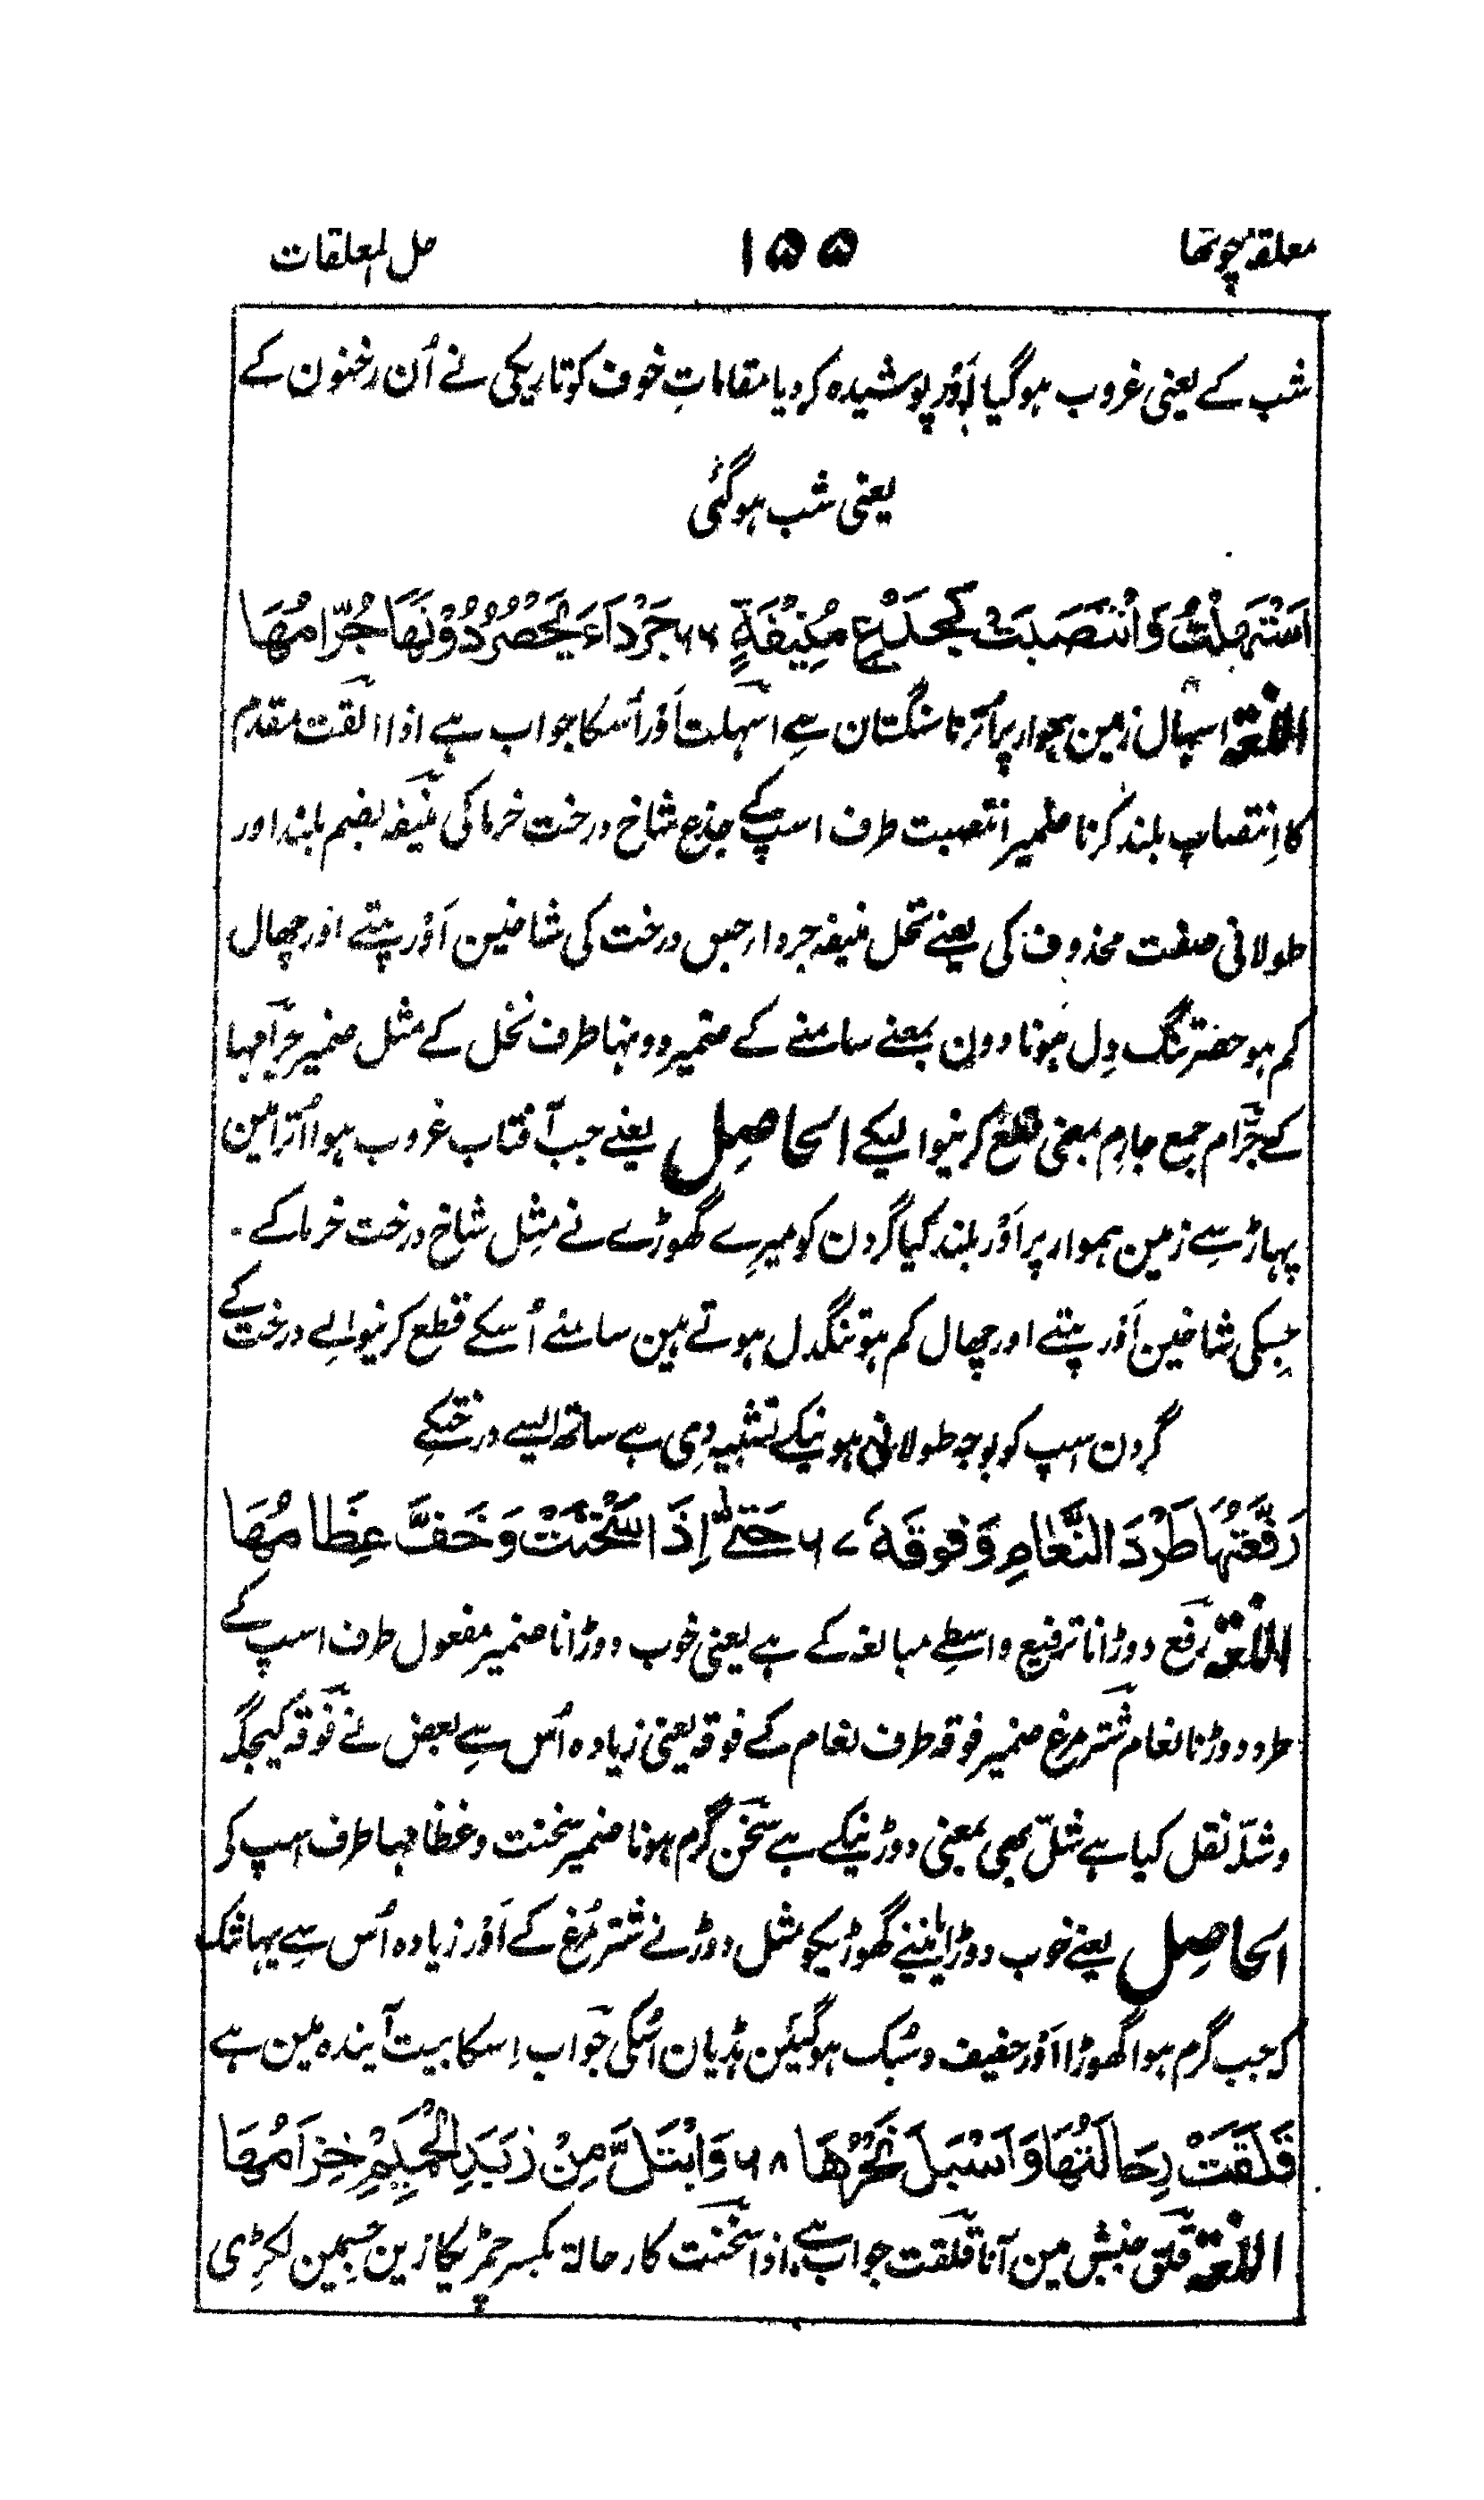 معلقہ چوتھا ۱۵۵ حل المعلقات
شب کے یعنی غروب ہوگیا اَور پوشیدہ کردیا مقاماتِ خوف کو تاریکی نے اُن رخنون کے
یعنی شب ہوگئی
اَسْہَلْتُ وَانْتَصَبَتْ کَجِذْعِ مُنِیْفَةٍ ۶۶ جَرْدَآءَ یَحْصَرُ دُوْنَهَا جُرَّامُهَا
اللغة اسہال زمین ہموار پر آنا سنگستان سے اسہلت اَور اُسکا جواب ہے اذا القت مقدم
کا اِنتصاب بلند کرنا ضمیر انتصبت طرف اسپ کے جذع شاخ درخت خرما کی منیفہ بضم بلند اور
طولانی صفت محذوف کی یعنے نخل منیفہ جرداء جس درخت کی شاخین اَور پتے اور چھال
کم ہو حضر تنگ دِل ہونا دون بمعنے سامنے کے ضمیر دونہا طرف نخل کے مثل ضمیر جرامہا
کے جرّام جمع جارِم بمعنی قطع کرنیوالیکے الحاصِل یعنے جب آفتاب غروب ہوا اُترا مین
پہاڑ سے زمین ہموار پر اَور بلند کیا گردن کو میرے گھوڑے نے مِثل شاخ درخت خرما کے ۔
جسکی شاخین اَور پتے اور چھال کم ہو تنگدل ہوتے ہین سامنے اُسکے قطع کرنیوالے درخت کے
گردن اسپ کو بوجہ طولانی ہونیکے تشبیہ دِی ہے ساتھ ایسے درختکے
رَفَّعْتُهَا طَرْدَ النَّعَامِ وَفَوْقَهٗ ۶۷ حَتّٰی اِذَا سَخُنَتْ وَخَفَّ عِظَامُهَا
اللغة رفع دوڑانا ترفیع واسطے مبالغہ کے ہے یعنی خوب دوڑانا ضمیر مفعول طرف اسپ کے
طرد دوڑنا نعام شترمرغ ضمیر فوقہ طرف نعام کے فوقہ یعنی زیادہ اُس سے بعض نے فوقہ کیجگہ
وشلہ نقل کیا ہے شلّ بھی بمعنی دوڑنیکے ہے سخن گرم ہونا ضمیر سخنت وعظامہا طرف اسپ کی
الحاصِل یعنے خوب دوڑایا مینے گھوڑیکو مثل دوڑنے شترمُرغ کے اَور زیادہ اُس سے یہانتک
کہ جب گرم ہوا گھوڑا اَور خفیف و سُبک ہوگیئن ہڈیان اُسکی جواب اِسکا بیت آیندہ مین ہے
قَلِقَتْ رِحَالَتُهَا وَاَسْبَلَ نَحْرُهَا ۶۸ وَابْتَلَّ مِنْ زَبَدِ الْحَمِیْمِ حِزَامُهَا
اللغة قلق جنبش مین آنا قلقت جواب ہے اذا سخنت کا رحالة بکسر چمڑیکا زین جسمین لکڑی